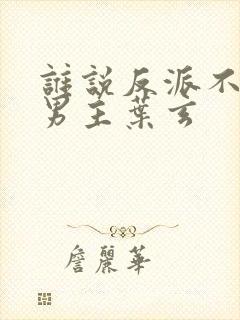 誰說反派不
男主葉玄
詹麗華